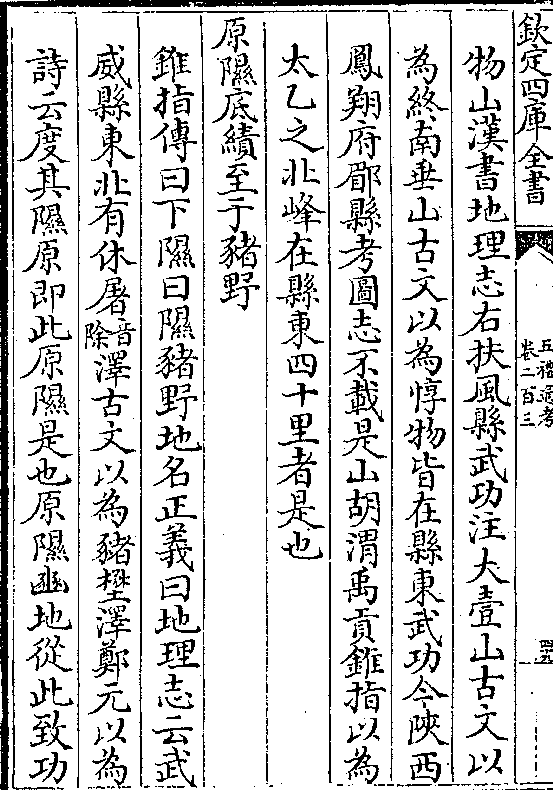 欽定四庫全書
五禮通考
卷二百三
四九
物山漢書地理志右扶風縣武功注大壹山古文以
為終南垂山古文以為惇物皆在縣東武功今陝西
鳳翔府郿縣考圖志不載是山胡渭禹貢錐指以為
太乙之北峰在縣東四十里者是也
原隰底績至于豬野
錐指傳曰下隰曰隰豬野地名正義曰地理志云武
威縣東北有休屠音除澤古文以為豬壄澤鄭元以為
詩云度其隰原即此原隰是也原隰豳地從此致功